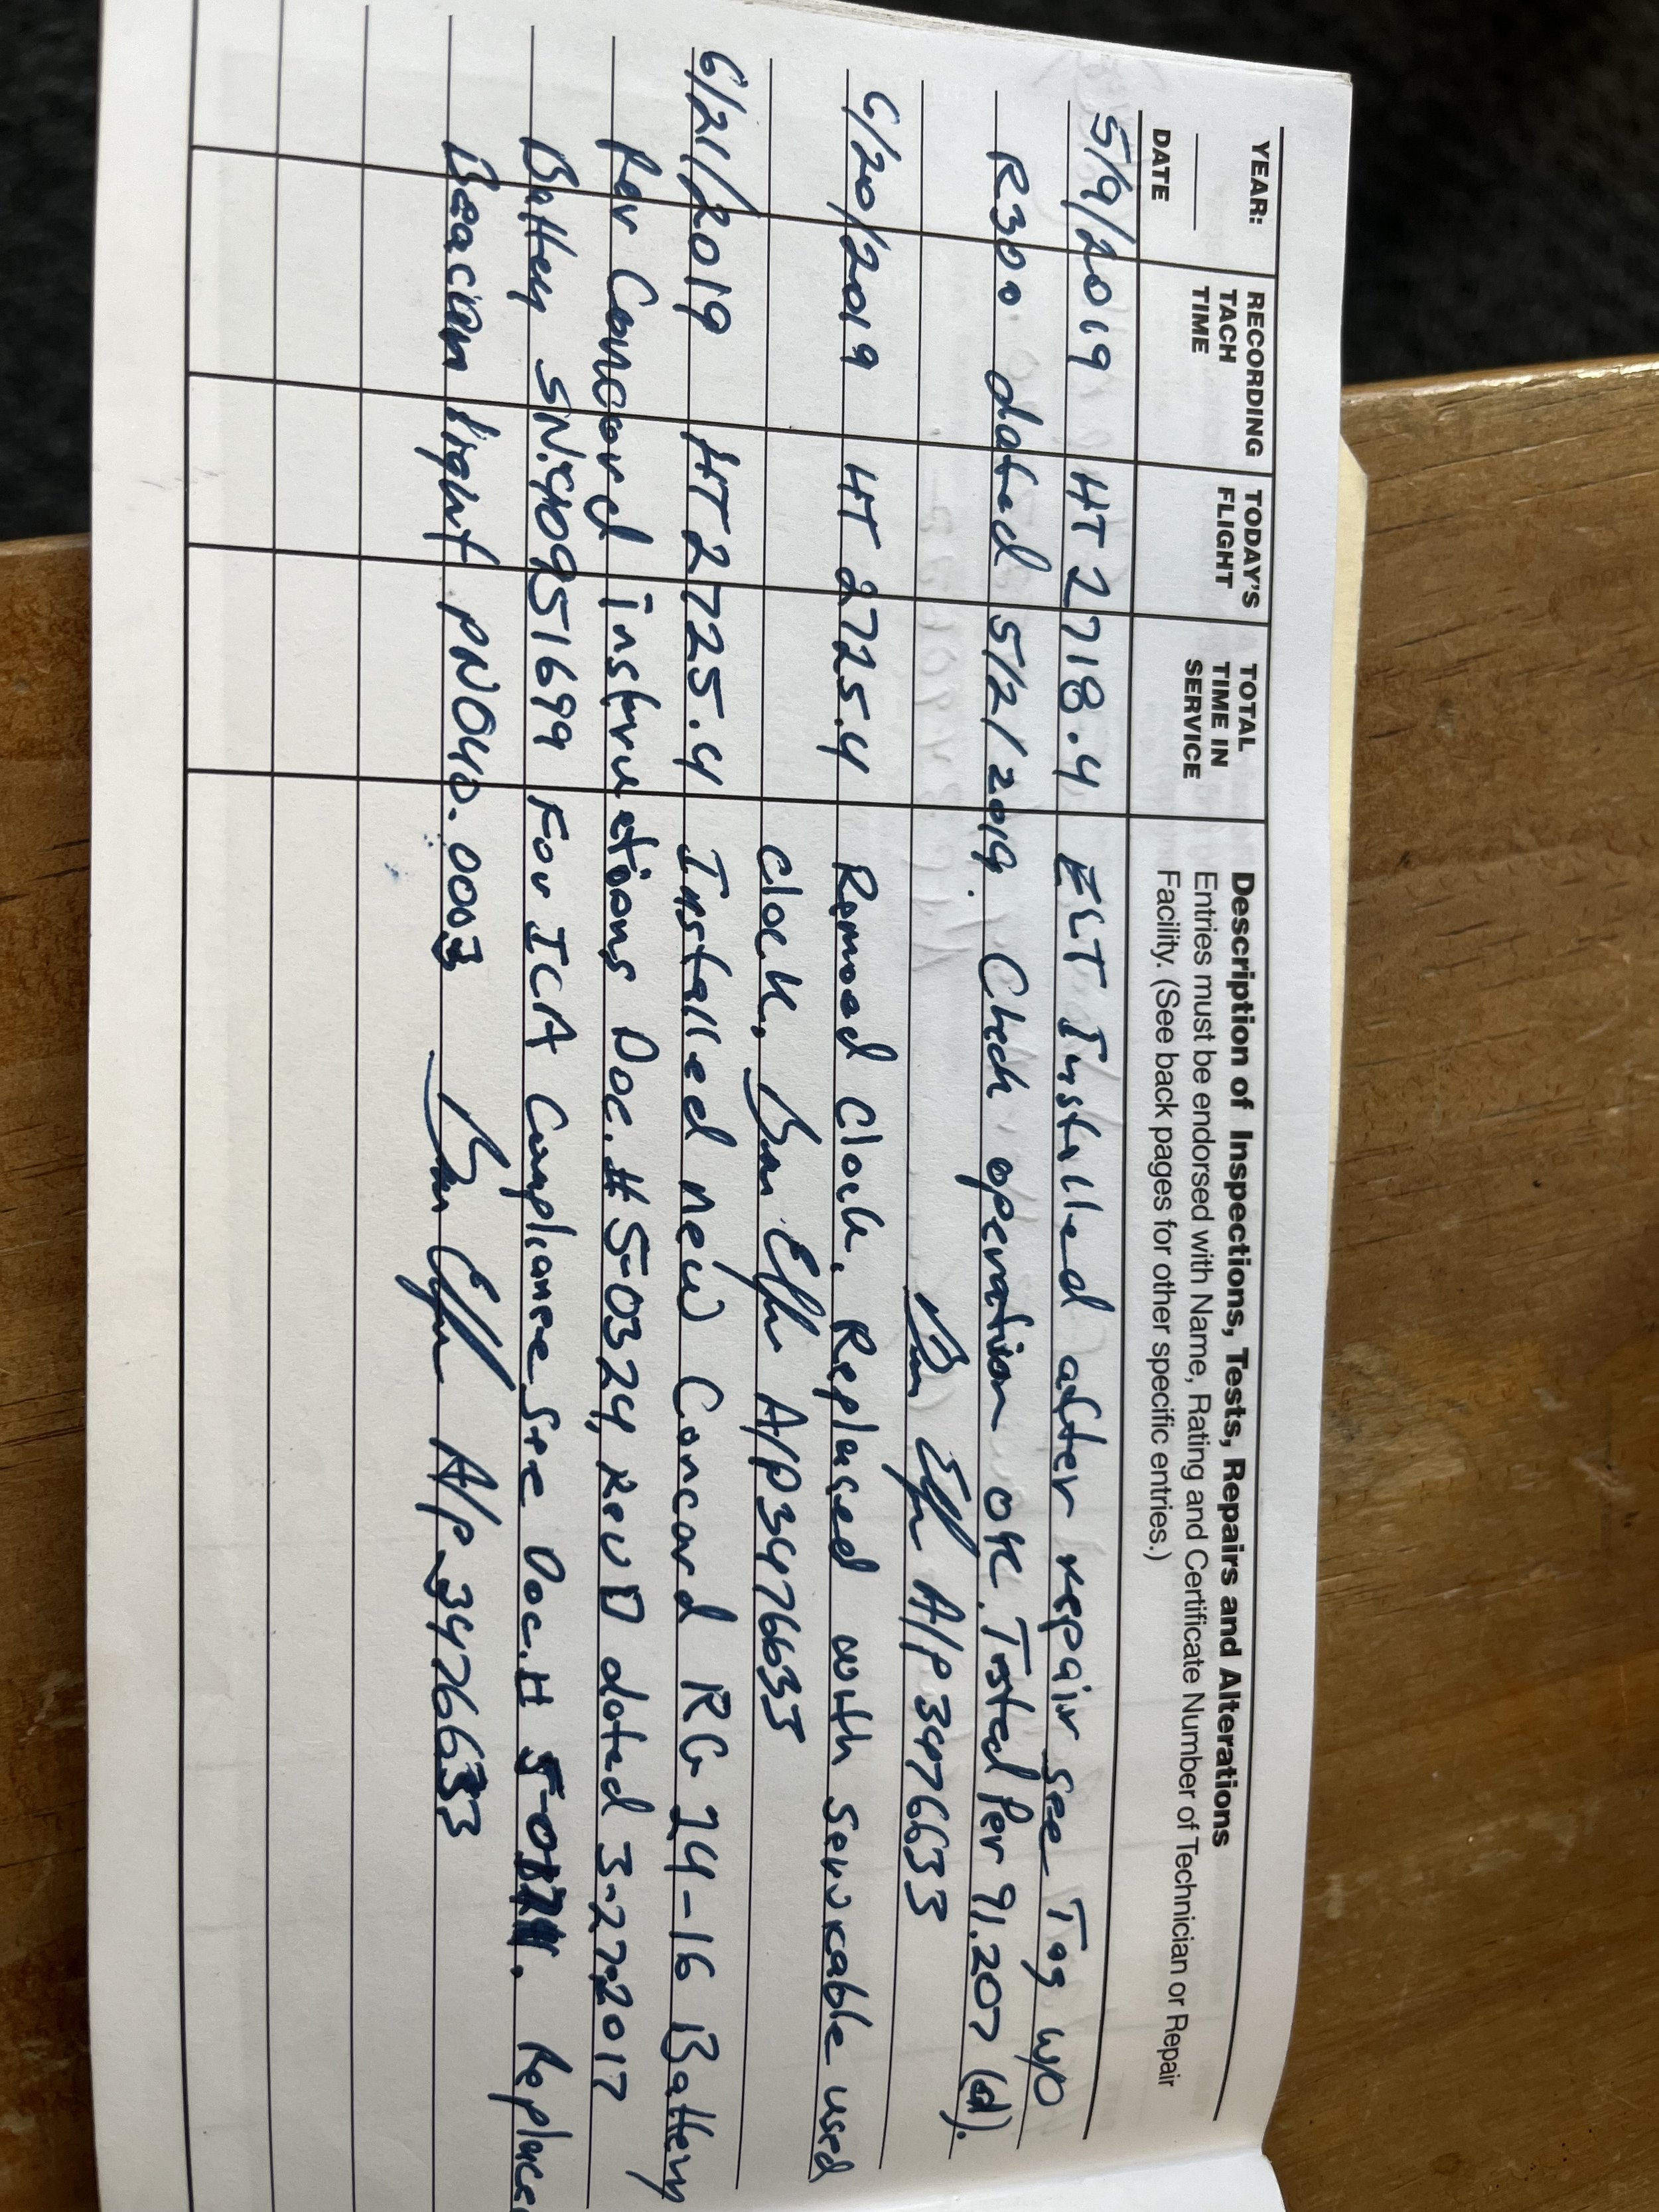 YEAR: RECORDING TODAY'S TOTAL Description of Inspections, Tests, Repairs and Alterations
TACH FLIGHT TIME IN Entries must be endorsed with Name, Rating and Certificate Number of Technician or Repair
DATE TIME SERVICE Facility. (See back pages for other specific entries.)
5/9/2019 HT 2718.4 ELT Installed after repair see Tag W/O
R300 dated 5/2/2019. Check operation OK. Tested Per 91.207 (d).
A/P 3476633
6/20/2019 HT 2725.4 Remoed clock. Replaced with servicable used
clock. A/P 3476633
6/21/2019 HT 2725.4 Installed new Concord RG 24-16 Battery
Per Concord instructions Doc. # 5-0324, Rev D dated 3-27-2017
Battery SN:40951699 For ICA Compliance see Doc. # Replaced
Beacon light PN040.0003 A/P 3476633